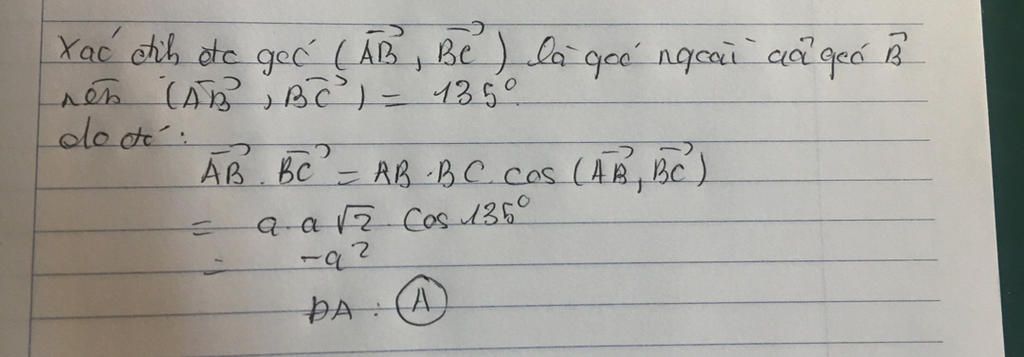 Xác đih đtc góc (AB⃗, BC⃗) là góc ngoài của góc B⃗
nên (AB⃗, BC⃗) = 135°
do đó:
AB⃗ . BC⃗ = AB . BC . cos (AB⃗, BC⃗)
= a . a√2 cos 135°
= -a²
ĐA : A